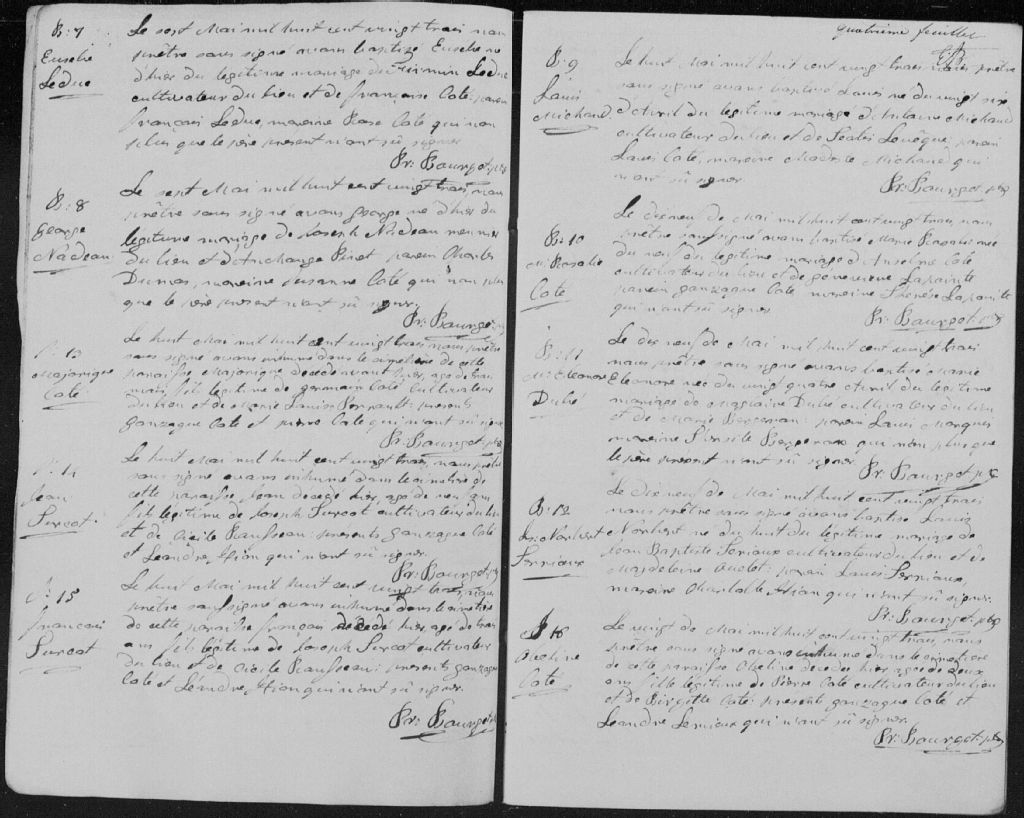 B: 7
Euselie
Leduc
Le sept Mai mil huit cent vingt trois nous
prêtre sous signé avons baptizé Euselie né
d'hier du légitime mariage de Firmin Leduc
cultivateur du lieu et de françoise Coté: parein
françois Leduc, mareine Rose Coté qui non
plus que le père présent n'ont sû signer
Pr: Bourget ptre
B: 8
George
Nadeau
Le sept Mai mil huit cent vingt trois, nous
prêtre sous signé avons George né d'hier du
légitime mariage de Joseph Nadeau
du lieu et d'Archange Pinet parein Charles
Dumas, mareine Susanne Coté qui non plus
que le père présent n'ont sû signer
Pr: Bourget
13
Majorique
Coté
Le huit Mai mil huit cent vingt trois, nous prêtre
sous signé avons inhumé dans le cimetière de cette
paroisse Majorique décédé avant hier agé de
fils légitime de Germain Coté cultivateur
du lieu et de Marie Louise Perrault: présents
Gonzague Coté et Pierre Coté qui n'ont sû signer
Pr: Bourget ptre
14
Jean
Turcot
Le huit Mai mil huit cent vingt trois, nous prêtre
sous signé avons inhumé dans le cimetière de
cette paroisse Jean décédé hier agé de neuf ans
fils légitime de Joseph Turcot cultivateur du lieu
et de Cécile Rousseau: présents Gonzague Coté
et Léandre qui n'ont sû signer.
Pr: Bourget ptre
15
françois
Turcot
Le huit Mai mil huit cent vingt trois, nous
prêtre sous signé avons inhumé dans le cimetière
de cette paroisse françois décédé hier agé de trois
ans fils légitime de Joseph Turcot cultivateur
du lieu et de Cécile Rousseau: présents Gonzague
Coté et Léandre qui n'ont sû signer.
Pr: Bourget
quatrième feuillet
B: 9
Louis
Michaud
Le huit Mai mil huit cent vingt trois nous prêtre
sous signé avons baptizé Louis né du vingt six
d'Avril du légitime mariage d'Antoine Michaud
cultivateur du lieu et de Levêque, parein
Louis Coté, mareine Modeste Michaud qui
n'ont sû signer
Pr: Bourget ptre
B: 10
M: Rosalie
Coté
Le dix neuf de Mai mil huit cent vingt trois nous
prêtre sous signé avons baptizé Marie Rosalie née
du neuf du légitime mariage d'Anselme Coté
cultivateur du lieu et de Genevieve Lapointe
parein Gonzague Coté mareine Therese Lapointe
qui n'ont sû signer
Pr: Bourget ptre
B: 11
M: Eleonore
Dubé
Le dix neuf de Mai mil huit cent vingt trois
nous prêtre sous signé avons baptizé Marie
Eleonore née du vingt quatre Avril du légitime
mariage de Dubé cultivateur du lieu
et de Marie Bergeron: parein Louis
mareine Ursule qui non plus que
le père présent n'ont sû signer
Pr: Bourget ptre
B: 12
Ls: Norbert
Terriaux
Le dix neuf de Mai mil huit cent vingt trois
nous prêtre sous signé avons baptizé Louis
Norbert né du huit du légitime mariage de
Jean Baptiste Terriaux cultivateur du lieu et de
Magdeleine Ouelet: parein Louis Terriaux,
mareine Charlotte qui n'ont sû signer.
Pr: Bourget ptre
16
Obeline
Coté
Le vingt de Mai mil huit cent vingt trois, nous
prêtre sous signé avons inhumé dans le cimetière
de cette paroisse Obeline décédée hier agée de deux
ans fille légitime de Pierre Coté cultivateur du lieu
et de Birgette Coté: présents Gonzague Coté et
Leandre Lemieux qui n'ont sû signer.
Pr: Bourget ptre